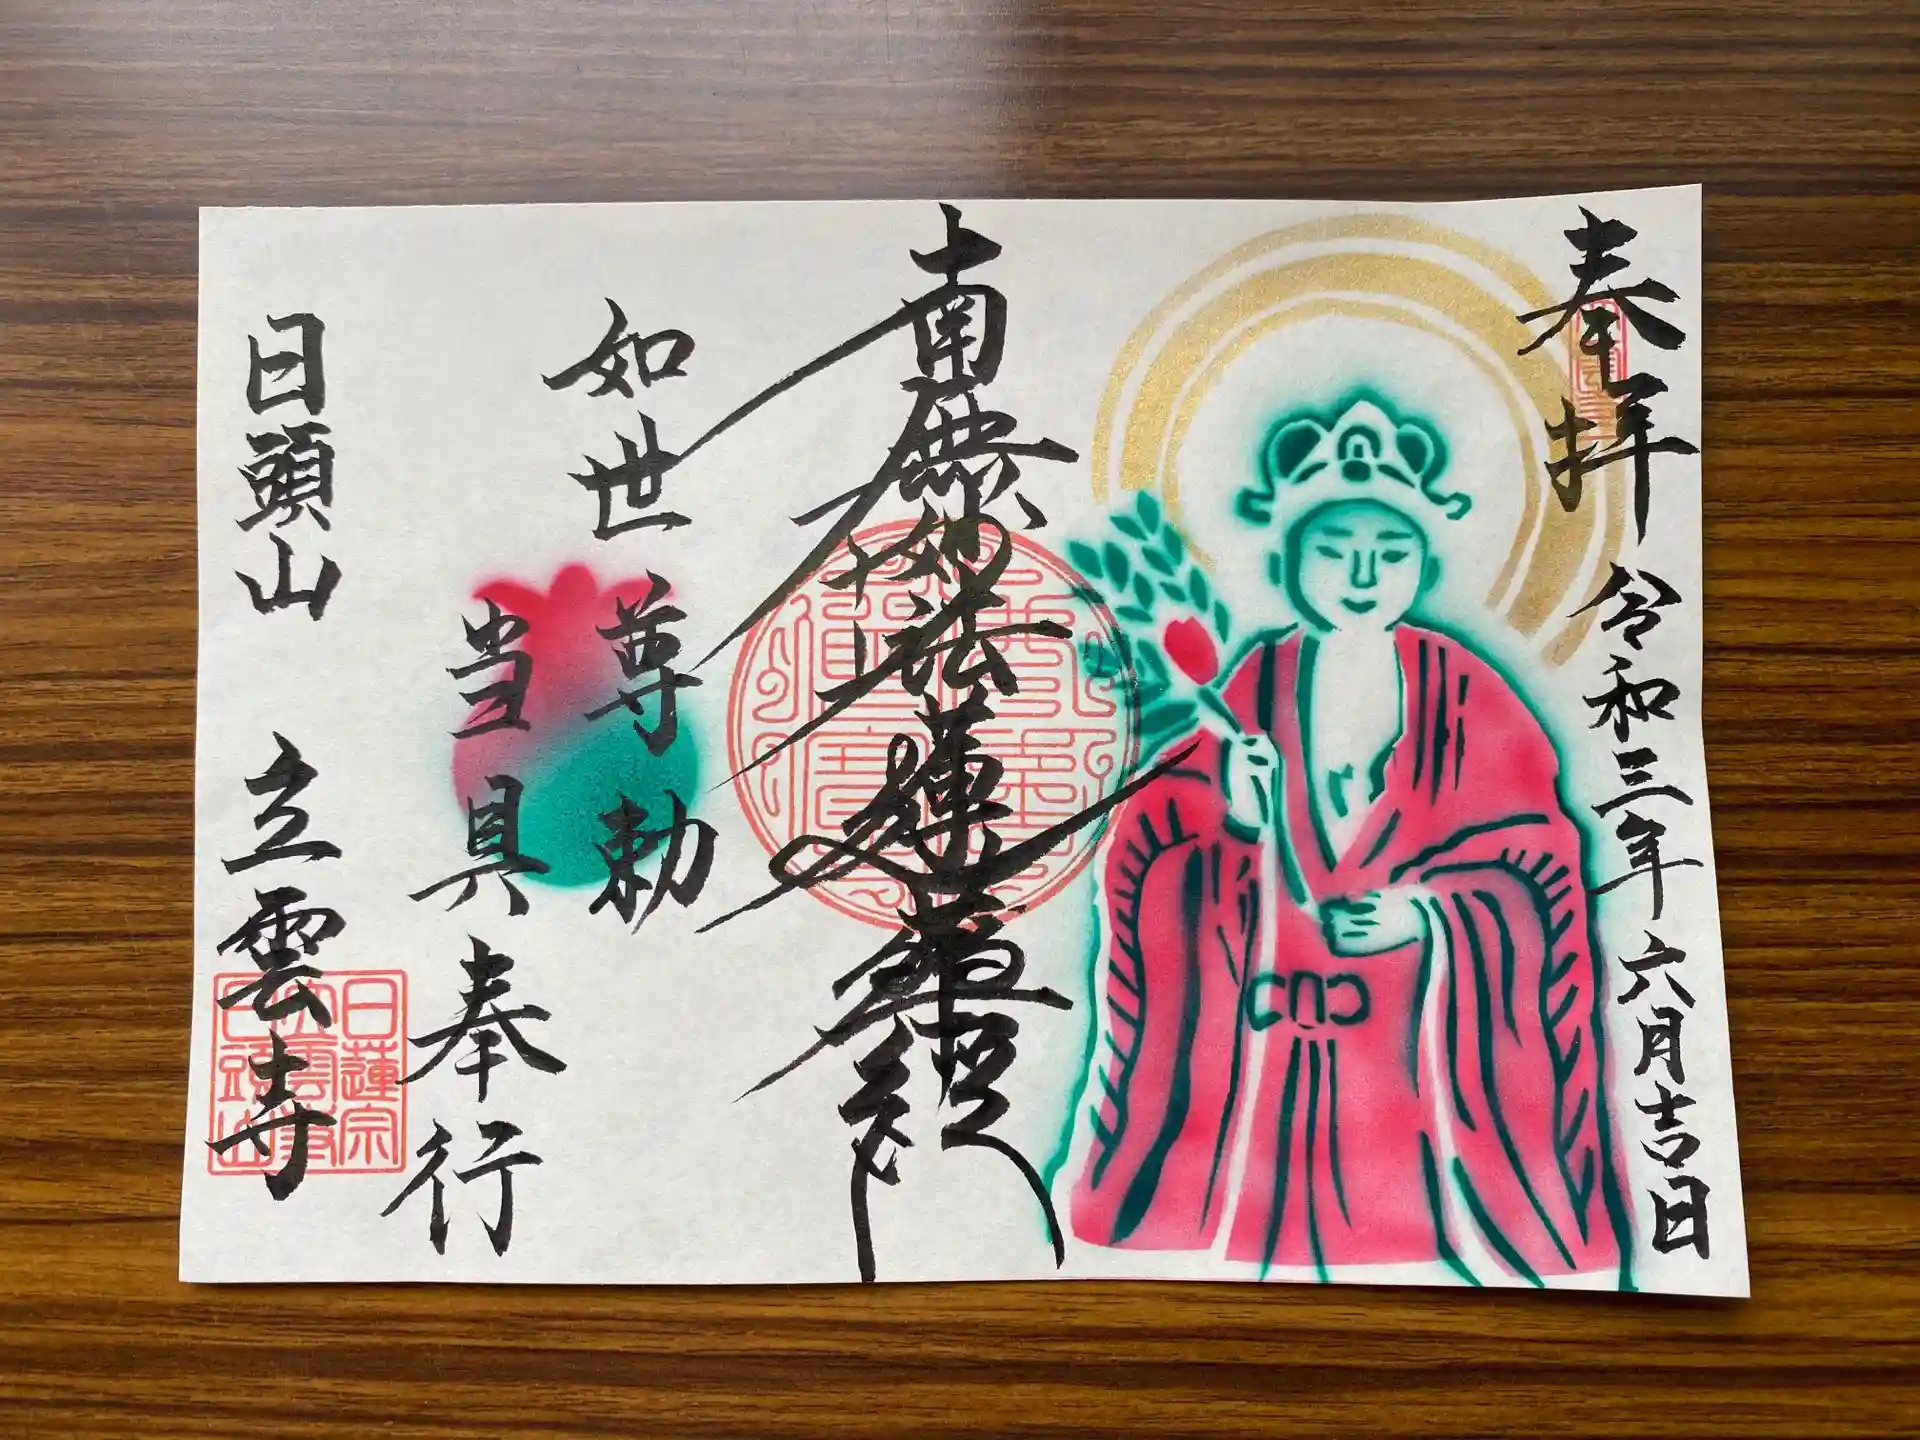 奉拝
令和三年 六月吉日
南無妙法蓮華経
如世尊勅
当具奉行
日頭山 立雲寺
日蓮宗
立雲寺
日頭山